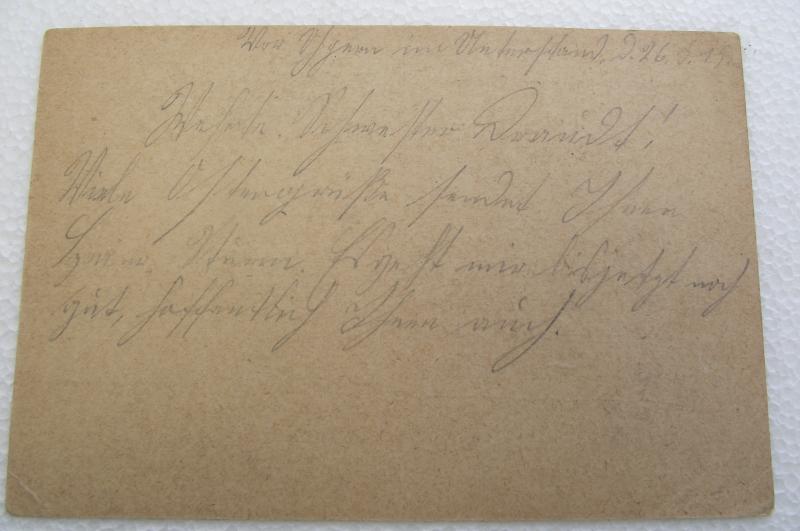 Vor Ypern im Unterstand, d. 26. 3. 15.
Werte Schwester Brandt!
Viele Ostergrüße sendet Ihnen
Sturm. Es geht mir bis jetzt noch
gut, hoffentlich Ihnen auch.